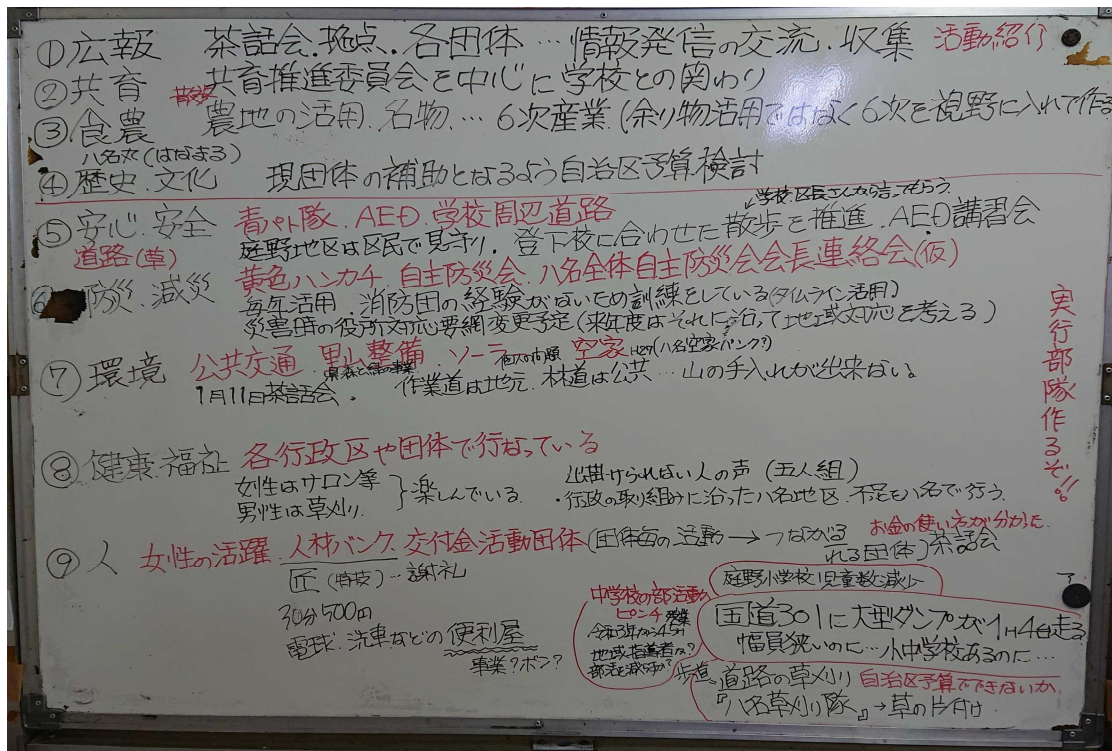 ①広報 茶話会.拠点.各団体…情報発信の交流.収集 活動紹介
②共育 共育推進委員会を中心に学校との関わり
③食農 農地の活用.名物.…6次産業.(余り物活用ではなく6次を視野に入れて作る
八名丸(はなまる)
④歴史.文化 現団体の補助となるよう自治区予算検討
↙学校、区長さんから言ってもらう.
⑤安心.安全 青パト隊.AED.学校周辺道路
道路(草) 庭野地区は区民で見守り.登下校に合わせた散歩を推進.AED講習会
⑥防災.減災 黄色ハンカチ.自主防災会.八名全体自主防災会会長連絡会(仮)
毎年活用.消防団の経験がないため訓練をしている(タイムライン活用)
災害時の役所対応要綱変更予定(来年度はそれに沿って地域対応を考える)
実行部隊作るぞ!!
⑦環境 公共交通 里山整備.ソーラー 個人の問題 空家 H29(八名空家バンク?)
1月11日茶話会. 作業道は地元.林道は公共…山の手入れが出来ない。
⑧健康.福祉 各行政区や団体で行なっている
女性はサロン等
男性は草刈り.
}楽しんでいる
出掛けられない人の声(五人組)
・行政の取り組みに沿った八名地区.不足を八名で行う.
⑨人 女性の活躍.人材バンク.交付金活動団体(団体毎の活動→つながる
れる団体)茶話会
お金の使い方が分かった.
匠(特技)…謝礼
30分500円
電球.洗車などの便利屋
事業?ボラ?
中学校の部活動
ピンチ
令和3年から
地域.指導者
庭野小学校児童数減少
国道301に大型ダンプが1日4台走る
幅員狭いのに…小中学校あるのに…
歩道 道路の草刈り 自治区予算でできないか.
『八名草刈り隊』→草の片付け